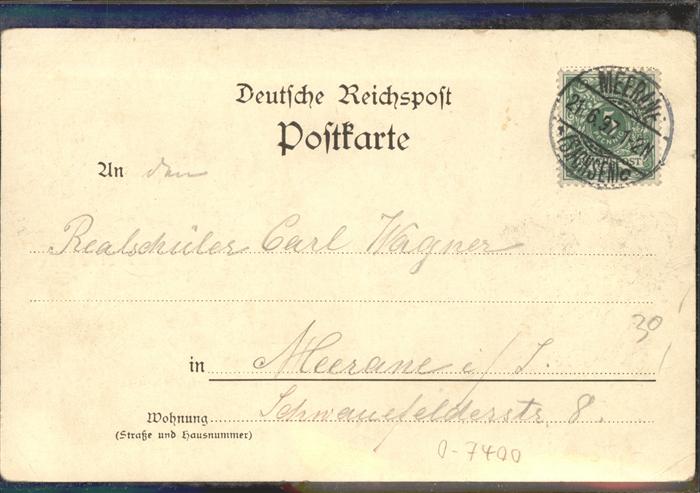 Deutsche Reichspost
Postkarte
An den
MEERANE
21.6.97.1-2N
(SACHSEN)c
Realschüler Carl Wagner
30
in Meerane i/S.
Wohnung Schwanefelderstr. 8.
(Straße und Hausnummer)
0-7400